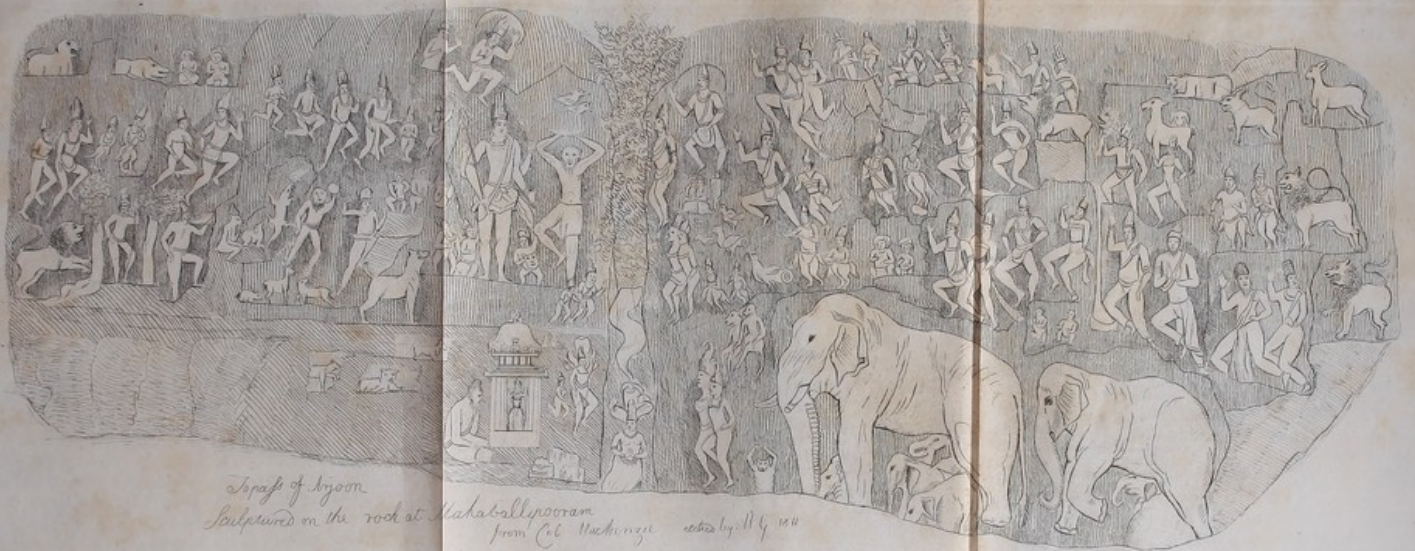 Topass of Arjoon
Sculptured on the rock at Mahaballipooram
from Col Mackenzie etched by